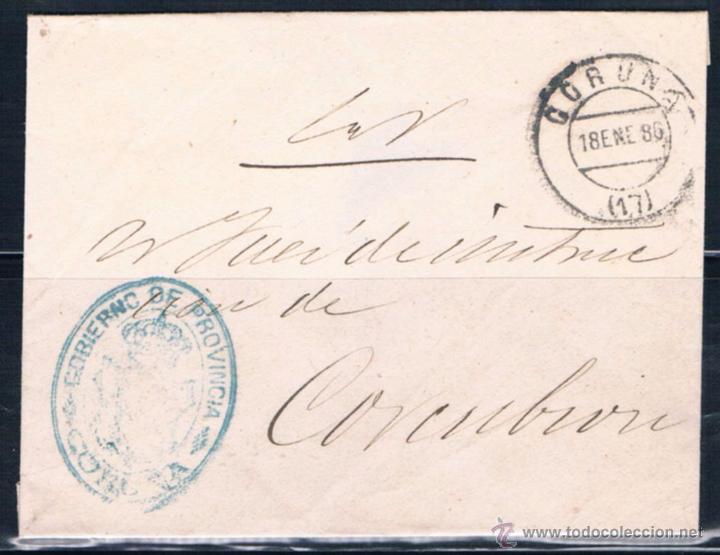 CORUÑA
18 ENE 86
(17)
S. N.
Sr Juez de instruc
ción de
Corcubion
GOBIERNO DE PROVINCIA
www.todocoleccion.net